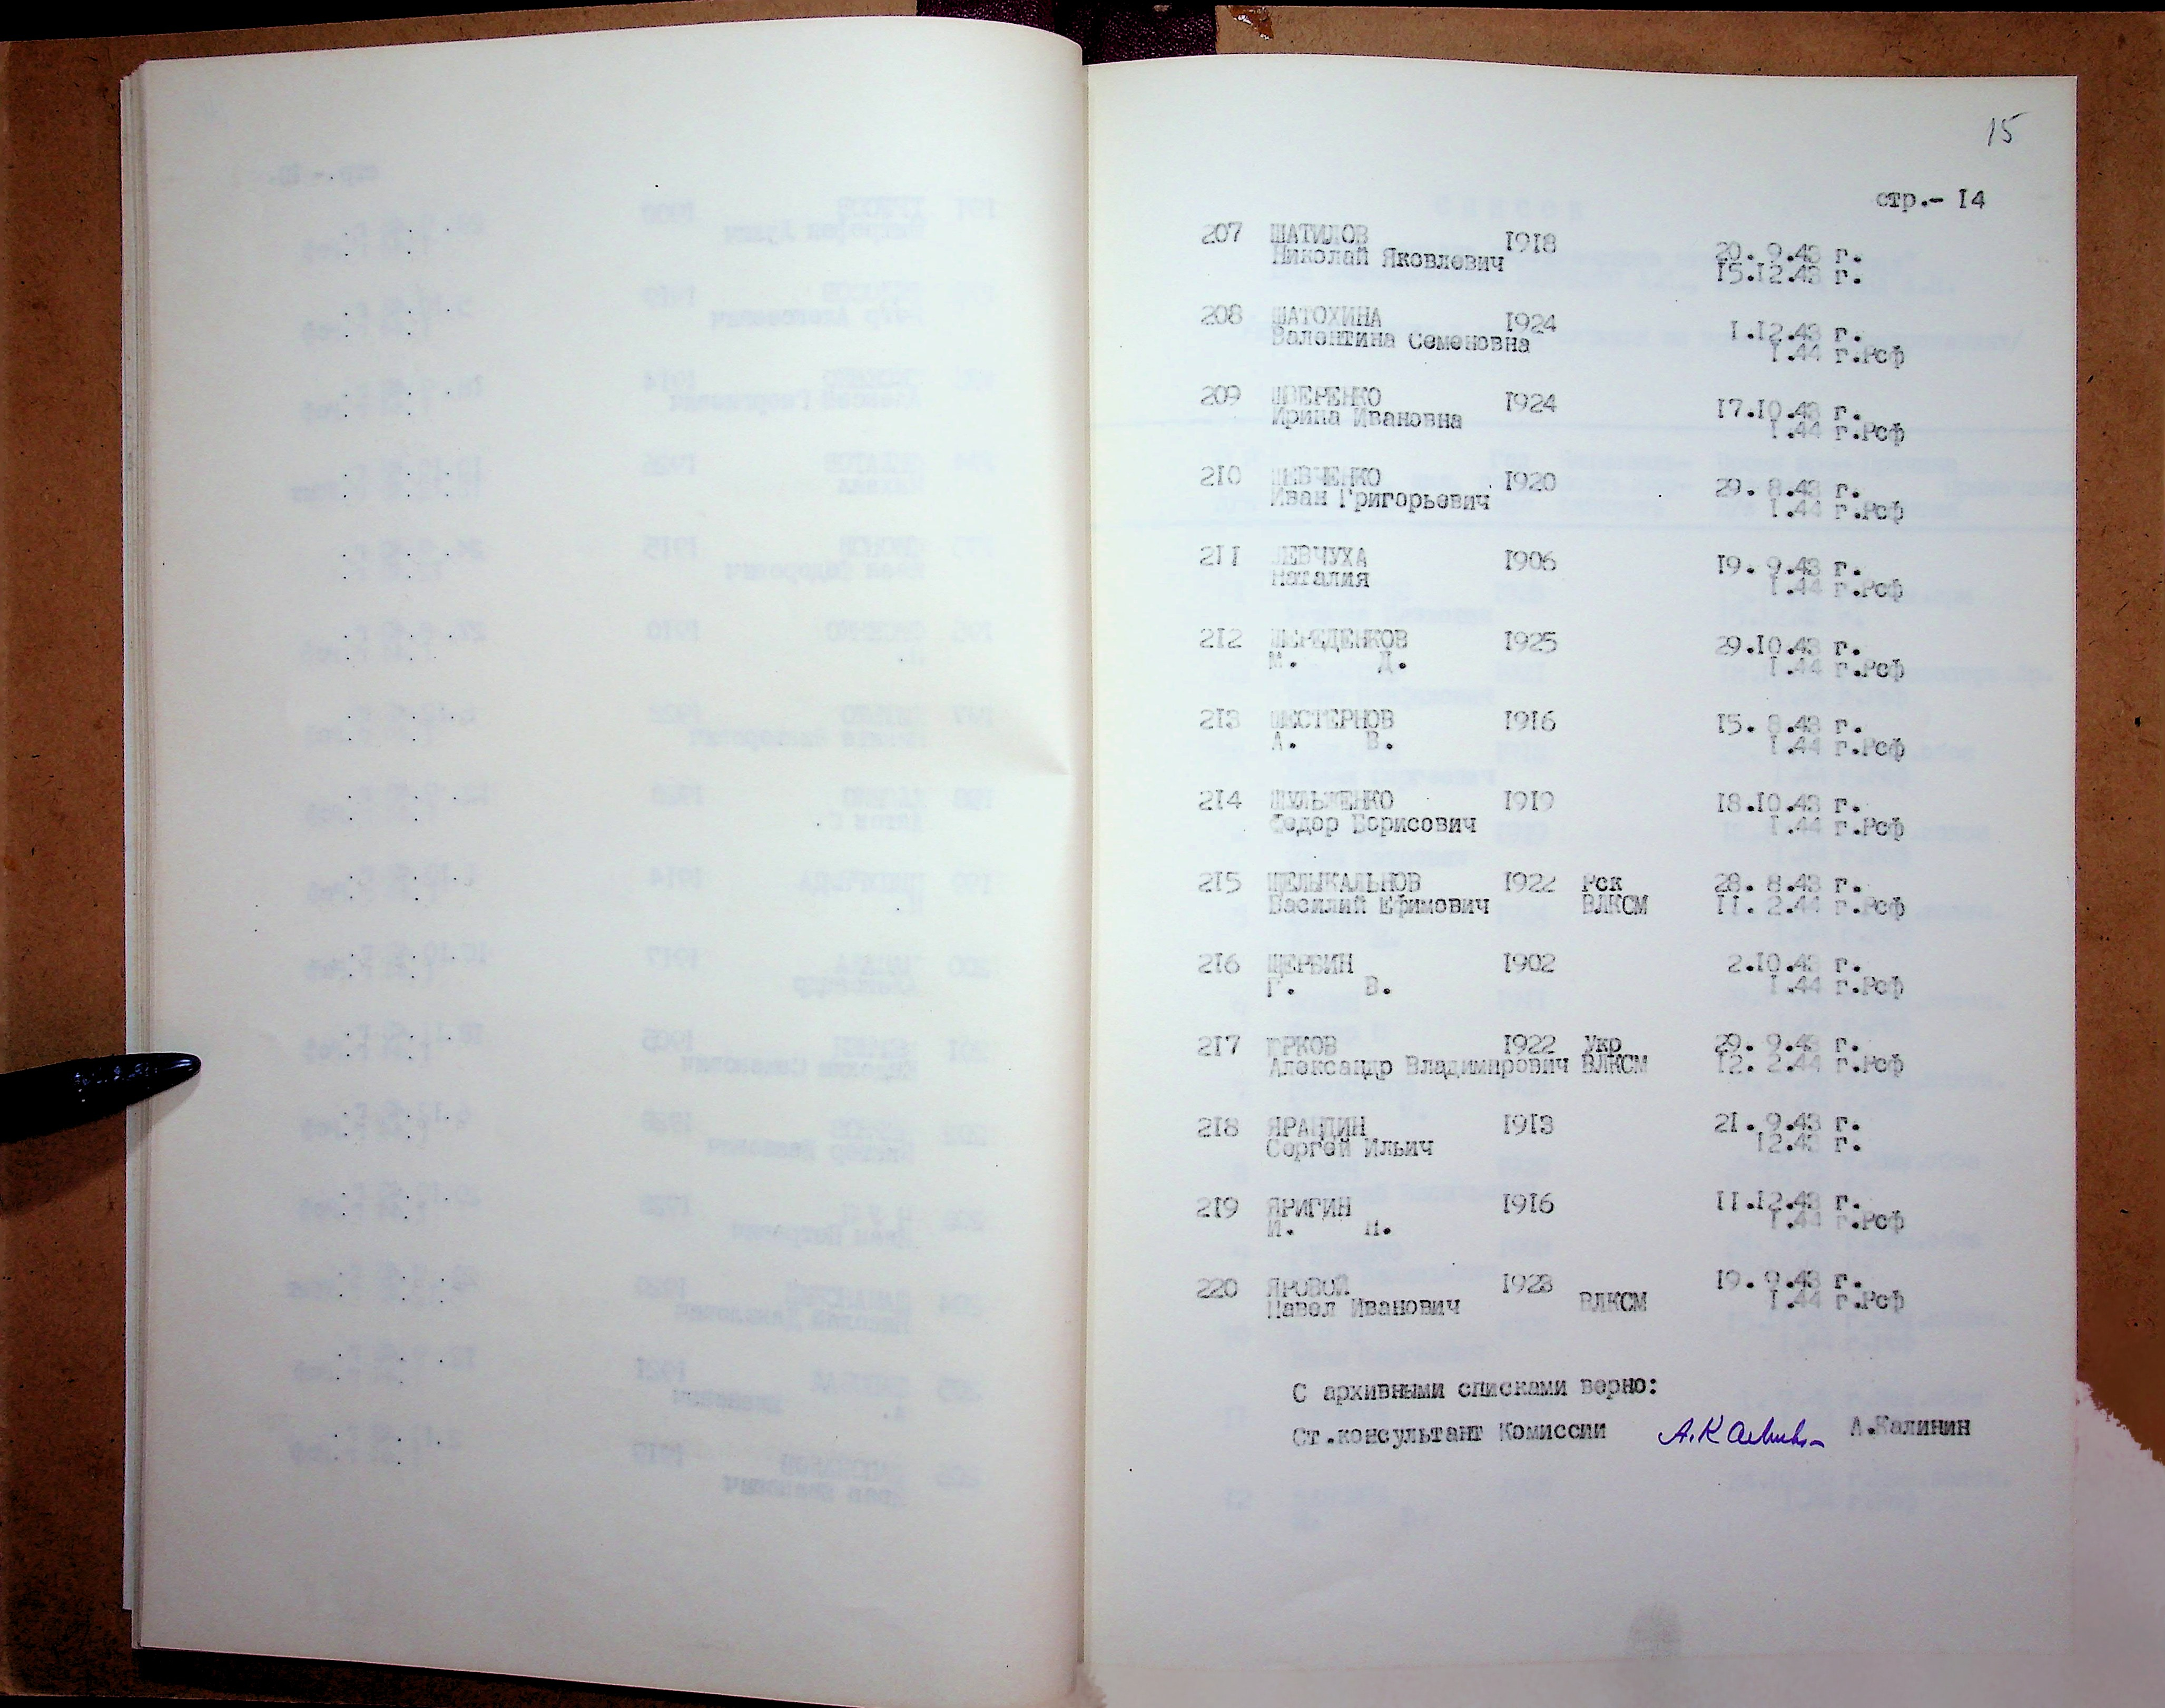 15
стр.- 14
207 ШАТИЛОВ 1918 20. 9.43 г.
Николай Яковлевич 15.12.43 г.
208 ШАТОХИНА 1924 1.12.43 г.
Валентина Семеновна 1.44 г.Рсф
209 ШВЕРЕНКО 1924 17.10.43 г.
Ирина Ивановна 1.44 г.Рсф
210 ШЕВЧЕНКО 1920 29. 8.43 г.
Иван Григорьевич 1.44 г.Рсф
211 ШЕВЧУХА 1906 19. 9.43 г.
Наталия 1.44 г.Рсф
212 ШЕРЕДЕНКОВ 1925 29.10.43 г.
М. Д. 1.44 г.Рсф
213 ШЕСТЕРНОВ 1916 15. 8.43 г.
А. В. 1.44 г.Рсф
214 ШУЛЬЖЕНКО 1919 18.10.43 г.
Федор Борисович 1.44 г.Рсф
215 ЩЕЛЫКАЛЬНОВ 1922 Рск 28. 8.43 г.
Василий Ефимович ВЛКСМ 11. 2.44 г.Рсф
216 ЩЕРБИН 1902 2.10.43 г.
Г. В. 1.44 г.Рсф
217 ЮРКОВ 1922 Укр 29. 9.43 г.
Александр Владимирович ВЛКСМ 12. 2.44 г.Рсф
218 ЯРАНДИН 1913 21. 9.43 г.
Сергей Ильич 12.43 г.
219 ЯРИГИН 1916 11.12.43 г.
И. 1.44 г.Рсф
220 ЯРОВОЙ 1923 19. 9.43 г.
Павел Иванович ВЛКСМ 1.44 г.Рсф
С архивными списками верно:
Ст.консультант Комиссии А.Калинин